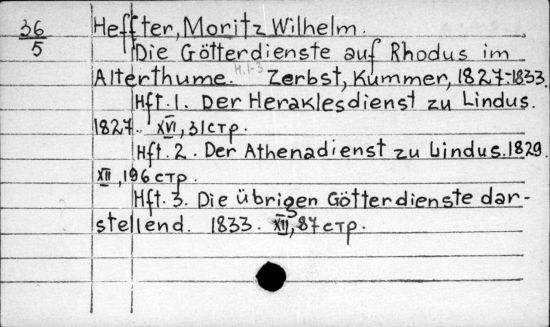 36
5
Heffter, Moritz Wilhelm.
Die Götterdienste auf Rhodus im
Alterthume. H.1-3 Zerbst, Kummer, 1827-1833.
Hft. 1. Der Heraklesdienst zu Lindus.
1827. XVI, 31 стр.
Hft. 2. Der Athenadienst zu Lindus. 1829.
XII, 196 стр.
Hft. 3. Die übrigen Götterdienste dar-
stellend. 1833. XII, 87 стр.